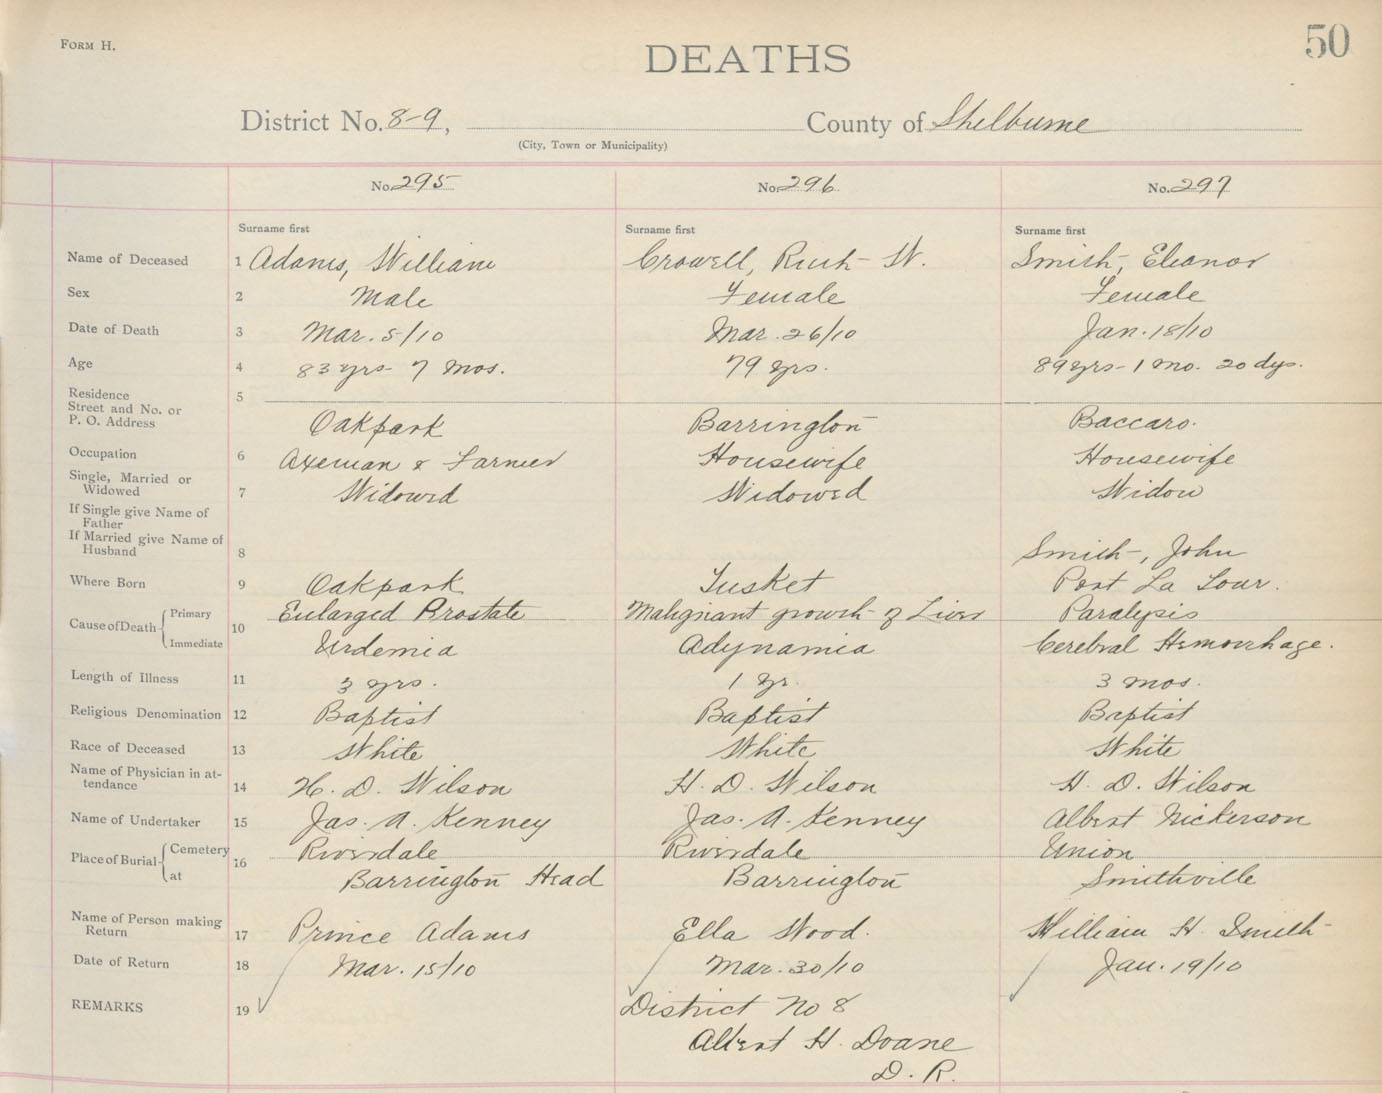 FORM H.
50
DEATHS
District No. 8-9, County of Shelburne
(City, Town or Municipality)
No. 295 No. 296 No. 297
Surname first Surname first Surname first
Name of Deceased 1 Adams, William Crowell, Ruth W. Smith, Eleanor
Sex 2 Male Female Female
Date of Death 3 Mar. 5/10 Mar. 26/10 Jan. 18/10
Age 4 83 yrs - 7 mos. 79 yrs. 89 yrs - 1 mo. 20 dys.
Residence 5
Street and No. or
P. O. Address Oakpark Barrington Baccaro.
Occupation 6 Axeman & Farmer Housewife Housewife
Single, Married or
Widowed 7 Widowed Widowed Widow
If Single give Name of
Father
If Married give Name of
Husband 8 Smith, John
Where Born 9 Oakpark Tusket Port La Tour.
Cause of Death Primary 10 Enlarged Prostate Malignant growth of Liver Paralysis
Immediate Uraemia Adynamia Cerebral Hemorrhage.
Length of Illness 11 3 yrs. 1 yr. 3 mos.
Religious Denomination 12 Baptist Baptist Baptist
Race of Deceased 13 White White White
Name of Physician in at-
tendance 14 H. D. Wilson H. D. Wilson H. D. Wilson
Name of Undertaker 15 Jas. A. Kenney Jas. A. Kenney Albert Nickerson
Place of Burial Cemetery 16 Riverdale Riverdale Union
at Barrington Head Barrington Smithville
Name of Person making
Return 17 Prince Adams Ella Wood. William H. Smith
Date of Return 18 Mar. 15/10 Mar. 30/10 Jan. 19/10
REMARKS 19 District No 8
Albert H. Doane
D. R.